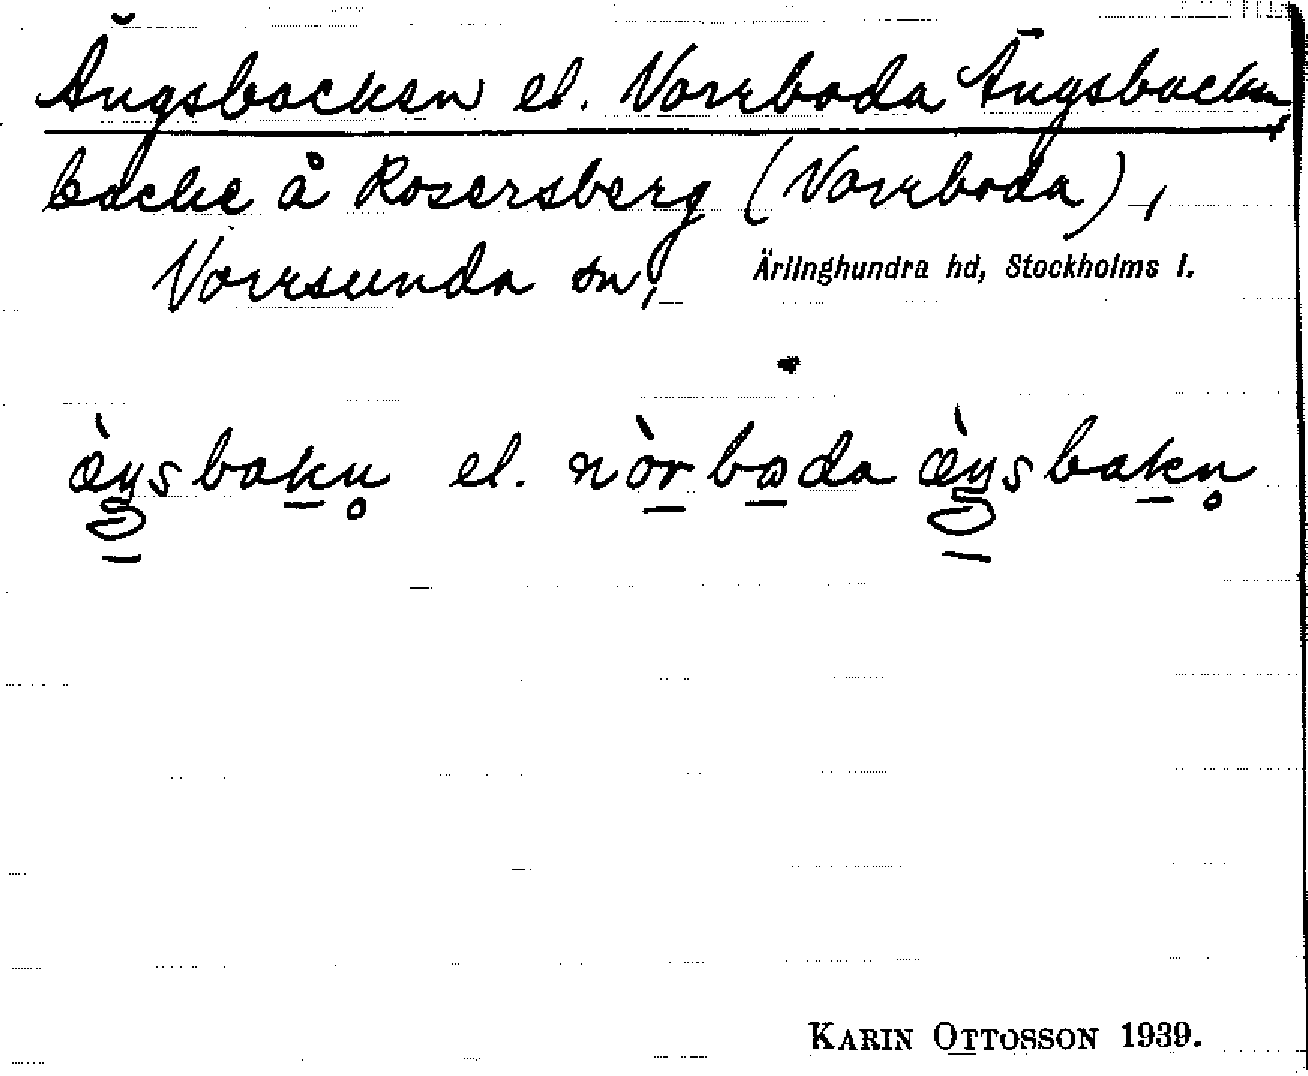 Ängsbacken el. Norrboda Ängsbacken,
backe å Rosersberg (Norrboda),
Norrsunda sn, Ärlinghundra hd, Stockholms l.
æ̀ŋsbak̲n̥ el. nòr̲bo̲da æ̀ŋsbak̲n̥
KARIN OTTOSSON 1939.